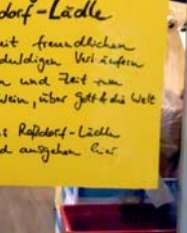 dorf-Lädle
mit freundlichen
duldigen Verkäufern
en und Zeit zum
wein, über Gott & die Welt
s Roßdorf-Lädle
d ausgehen hier